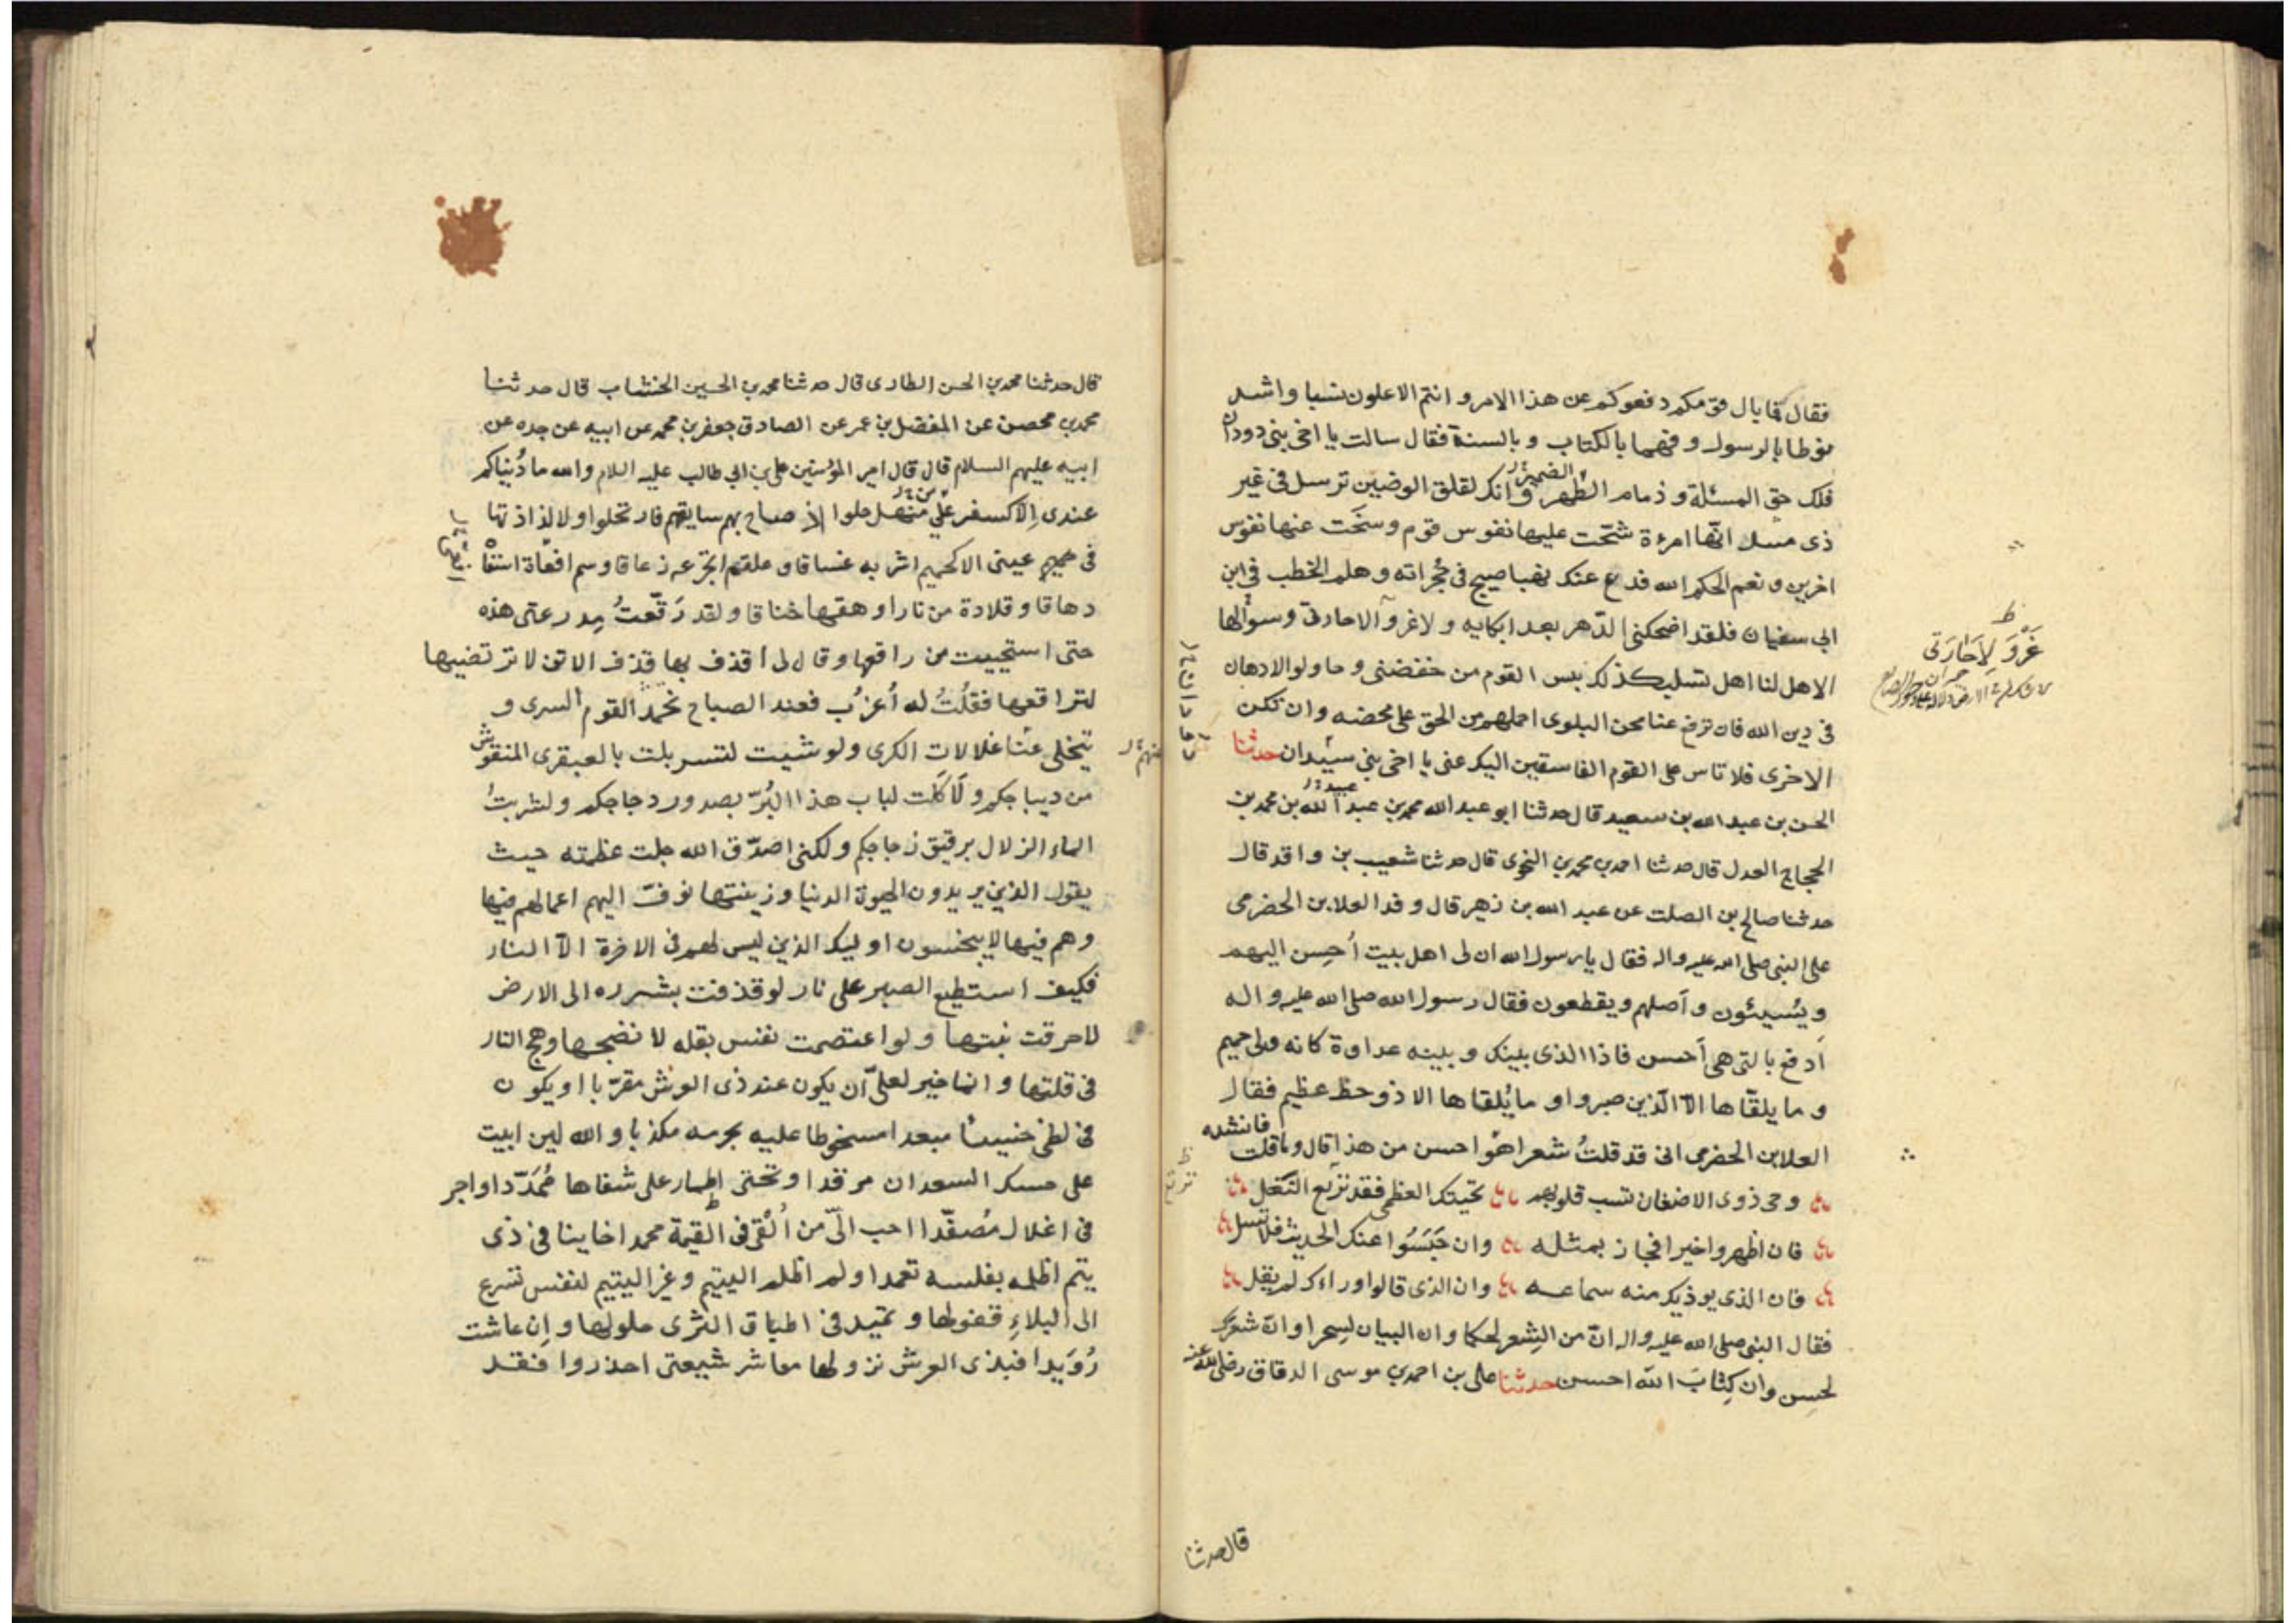 فقال فما بال قومكم دفعوكم عن هذا الامر و انتم الاعلون نسبا واشد
نوطا بالرسول و فهما بالكتاب و بالسنة فقال سالت يا اخى بنى دودان
فلك حق المسئلة و ذمام الظهر وانك لقلق الوضين ترسل فى غير
الضمير
ذى مسد انها امرءة شحّت عليها نفوس قوم و سخت عنها نفوس
اخرين و نعم الحكم الله فدع عنك نهبا صيح فى حُجراته و هلم الخطب فى ابن
ابى سفيان فلقد اضحكنى الدّهر بعد ابكايه و لا غرو الا جارتى وسؤالها
غَرْوَ لِاجَارَتى
الا هل لنا اهل تسليك كذلك بيس القوم من خفضنى و حاولوا الادهان
فى دين الله فان ترفع عنا محن البلوى احملهم من الحق على محضه وان تكن
الاخرى فلا تاس على القوم الفاسقين اليك عنى يا اخى بنى سيدان حدثنا
الحسن بن عبد الله بن سعيد قال حدثنا ابو عبد الله محمد بن عبد الله بن محمد بن
عبيد
الحجاج العدل قال حدثنا احمد بن محمد بن النحوى قال حدثنا شعيب بن واقد قال
حدثنا صالح بن الصلت عن عبد الله بن زهير قال وفد العلا بن الحضرمى
على النبى صلى الله عليه واله فقال يا رسول الله ان لى اهل بيت اُحسِن اليهم
ويُسيئون و اَصلهم ويقطعون فقال رسول الله صلى الله عليه واله
اَدفع بالتى هى اَحسن فاذا الذى بينك و بينه عداوة كانه ولى حميم
و ما يلقّاها الّا الّذين صبروا و ما يُلقاها الا ذو حظ عظيم فقال
العلا بن الحضرمى انى قد قلتُ شعرا هو احسن من هذا قال وما قلت
فانشده
وحى ذوى الاضغان تسب قلوبهم تحيتك العظمى فقد نزيع النغل
فان اظهروا خيرا فجاز بمثله وان خَبَسُوا عنك الحديث فلا تسل
فان الذى يوذيك منه سماعه وان الذى قالوا وراءك لم يقل
فقال النبى صلى الله عليه واله انّ من الشِعر لحكما وان البيان لسحرا وان شعرك
لحسن وان كِتابَ الله احسن حدثنا على بن احمد بن موسى الدقاق رضى الله عنه
قال حدثنا
قال حدثنا محمد بن الحسن الطارى قال حدثنا محمد بن الحسين الخشاب قال حدثنا
محمد بن محصن عن المفضل بن عمر عن الصادق جعفر بن محمد عن ابيه عن جده عن
ابيه عليهم السلام قال قال امير المؤمنين على بن ابى طالب عليه السلام والله ما دُنياكم
عندى اِلا كسفر على منهل حلوا اذ صاح بهم سايقهم فارتحلوا و لا لذاذتها
فى عينى الا كحميم اشربه غساقا و علقم اتجرعه زعاقا و سم افعاة اسقا
دهاقا و قلادة من نار اوهقها خناقا و لقد رَقّعتُ مِدرعتى هذه
حتى استحييت من راقعها و قال لى اقذف بها قذف الاتن لا ترتضيها
لتراقعها فقلُتُ له اُعزُب فعند الصباح نحمد القوم السرى و
منهم
تنجلى عنّا غلالات الكرى ولو شيت لتسربلت بالعبقرى المنقوش
من ديباجكم و لَاَكَلت لباب هذا البُرّ بصدور دجاجكم و لشربتُ
الماء الزلال برقيق زجاجكم و لكنى اصدّق الله جلت عظمته حيث
يقول الذين يريدون الحيوة الدنيا و زينتها نوفّ اليهم اعمالهم فيها
وهم فيها لا يبخسون اوليك الذين ليس لهم فى الاخرة الّا النار
فكيف استطيع الصبر على نار لو قذفت بشرره الى الارض
لاحرقت نبتها و لو اعتصمت نفس بقله لانضجها وهج النار
فى قلتها و انما خير لعلىّ اَن يكون عند ذى العرش مقرّبا او يكون
فى لظى خسيئا مبعدا مسخوطا عليه بجرمه مكذبا و الله لين ابيت
على حسك السعدان مرقدا و تحتى اطمار على شفاها مُمَدّدا او اجر
فى اغلال مُصفّدا احب الىّ من اُلقى فى القيمة محمدا خاينا فى ذى
يتم اظلمه بفلسه تعمدا و لم اظلم اليتيم و غير اليتيم لنفس تسرع
الى البلاءِ قفولها و تميد فى اطباق الثرى حلولها و اِن عاشت
رُوَيدا فبذى العرش نزولها معاشر شيعتى احذروا فقد